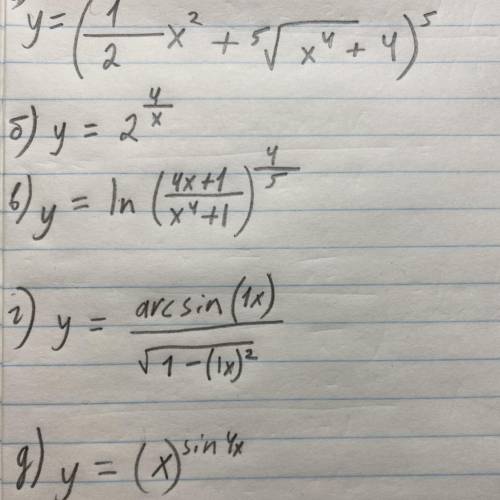 y = (1/2 x² + ⁵√(x⁴ + 4))⁵
б) y = 2^(4/x)
в) y = ln ((4x+1)/(x⁴+1))^(4/5)
г) y = arcsin(1x)/√(1-(1x)²)
д) y = (x)^(sin 4x)